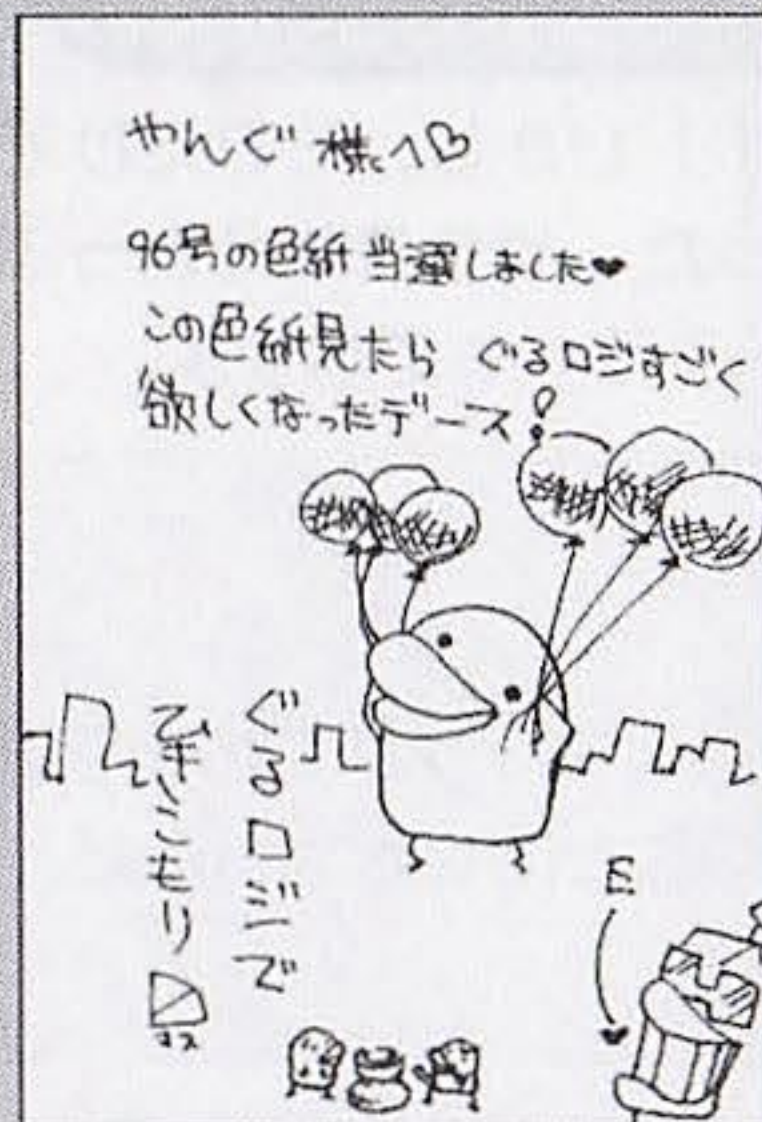 やんぐ様へ♡
96号の色紙当選しました♥
この色紙見たら ぐるロジすごく
欲しくなったデース!
ぐるロジで
ひきこもり〼
ます
E